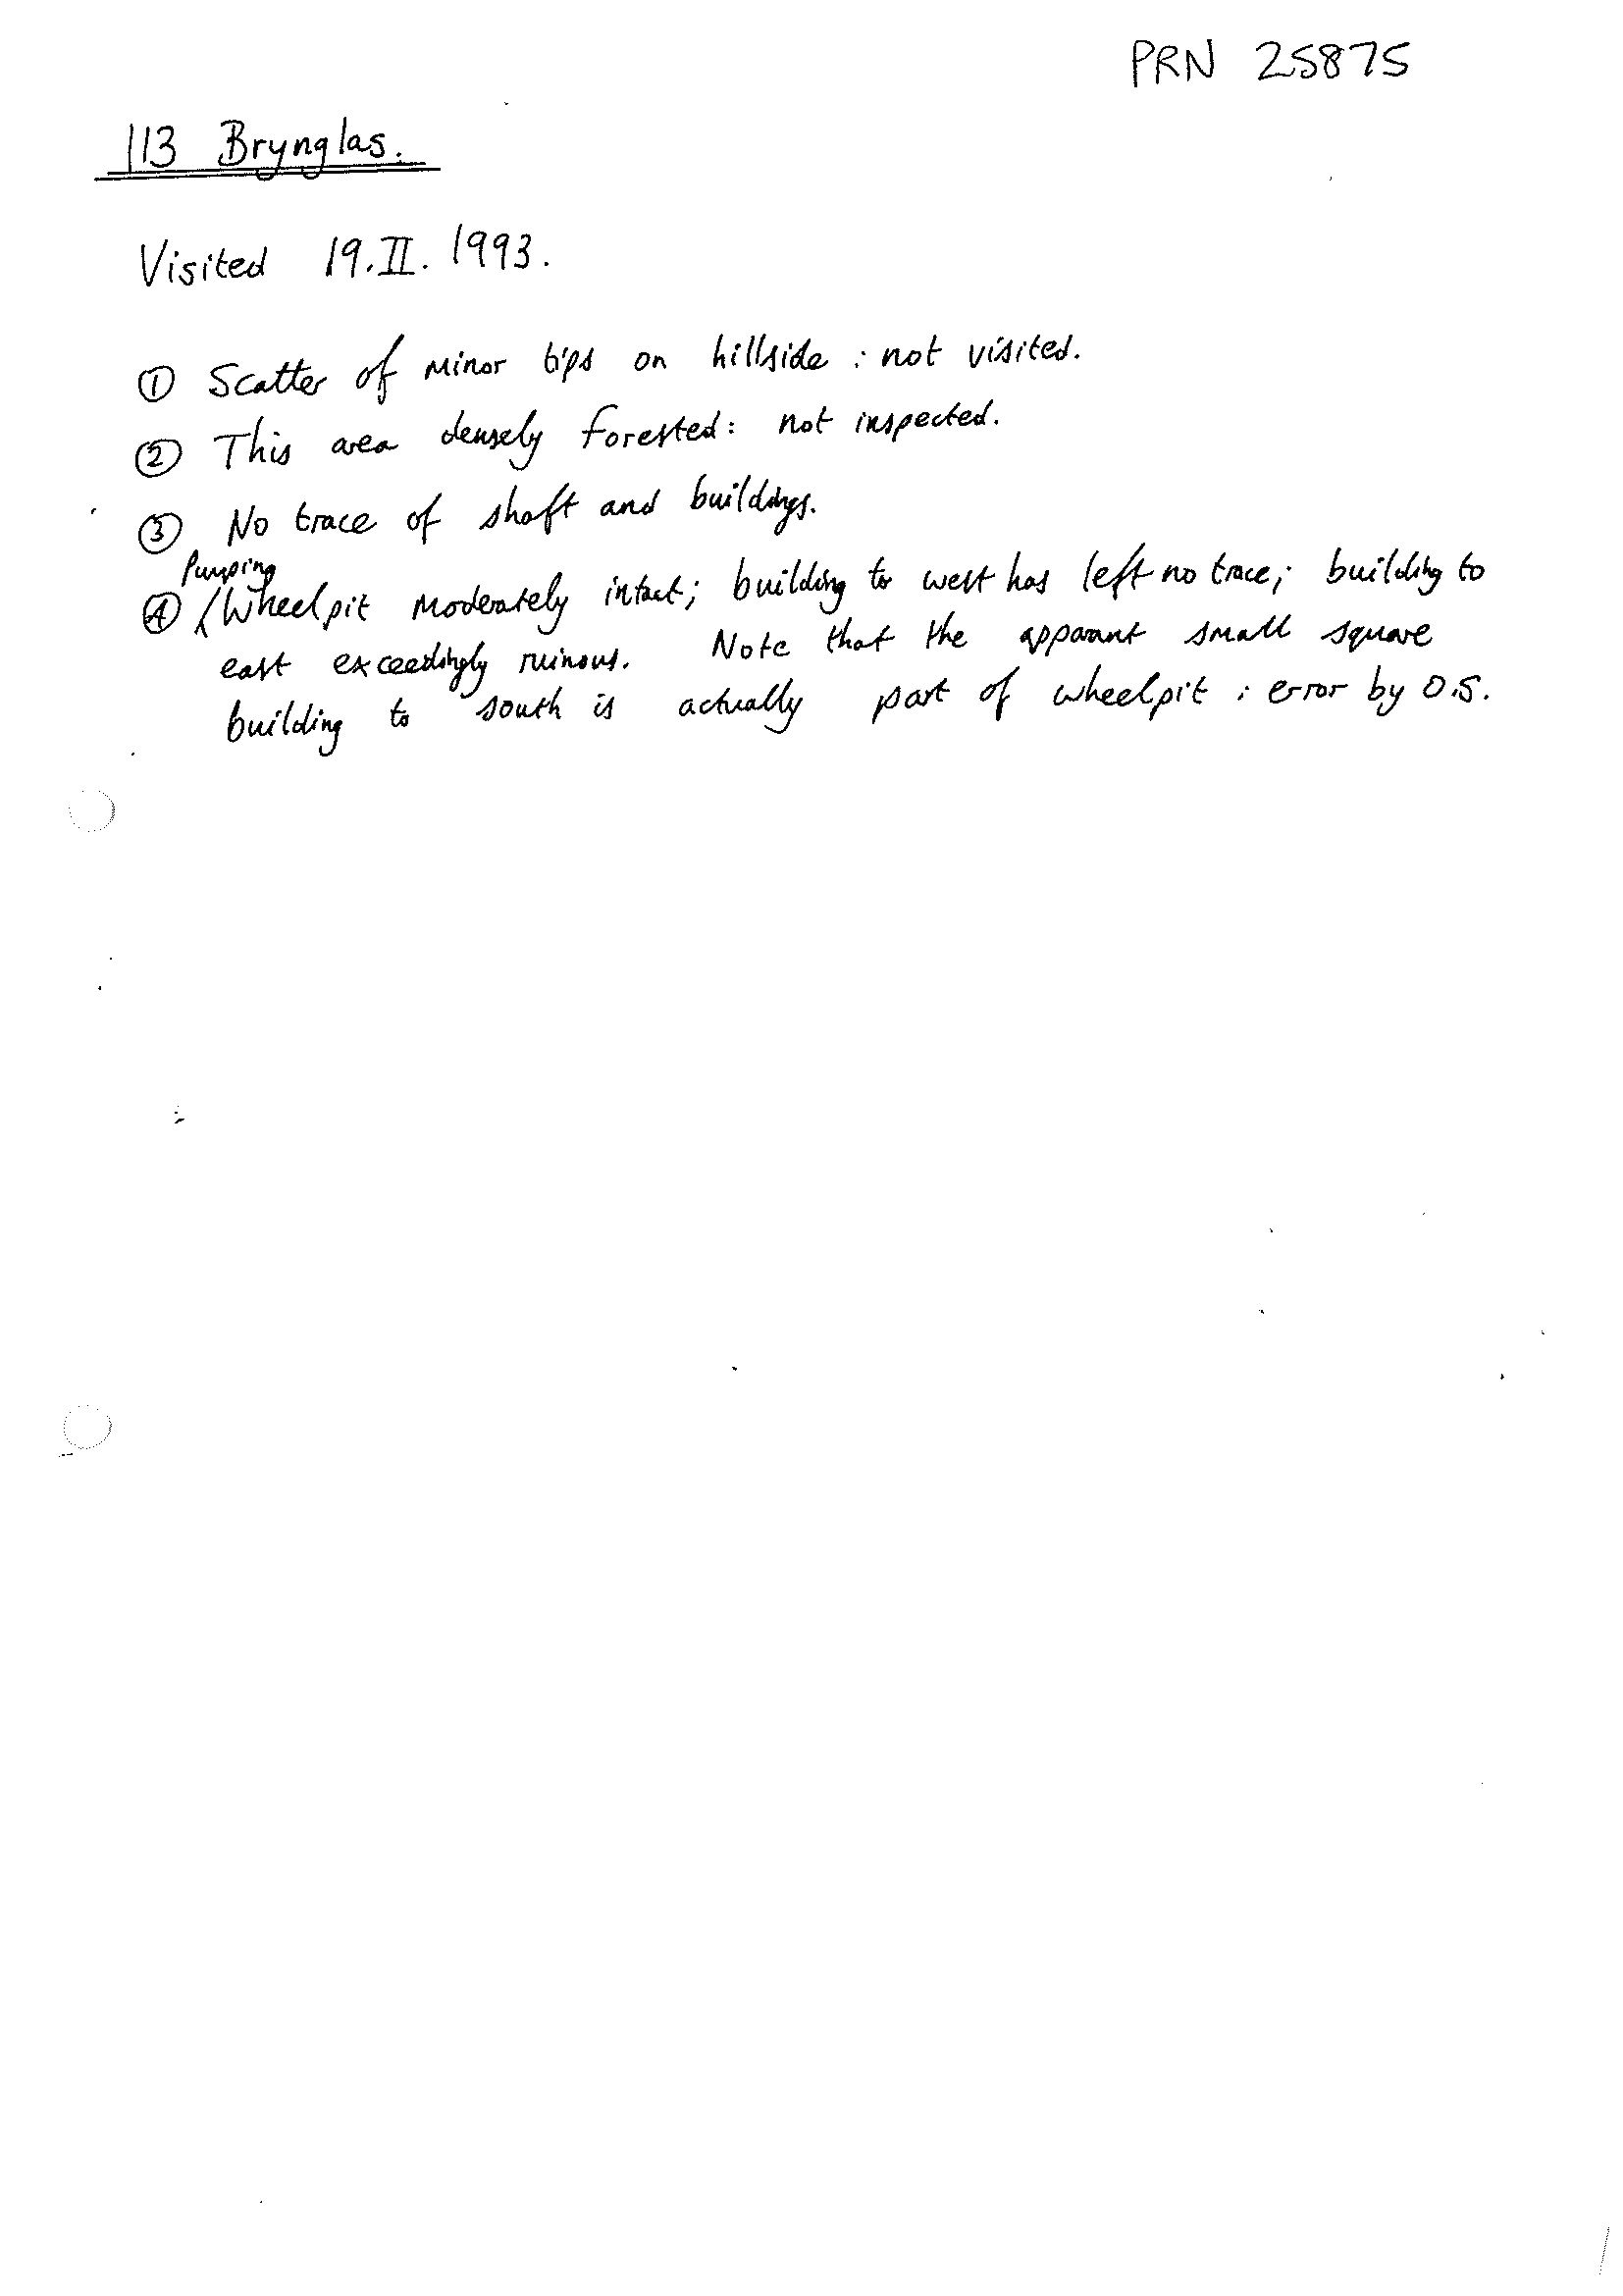 PRN 25875
113 Brynglas.
Visited 19.II.1993.
① Scatter of minor tips on hillside : not visited.
② This area densely forested: not inspected.
③ No trace of shaft and buildings.
Pumping
④ Wheelpit moderately intact; building to west has left no trace; building to
east exceedingly ruinous. Note that the apparant small square
building to south is actually part of wheelpit : error by O.S.